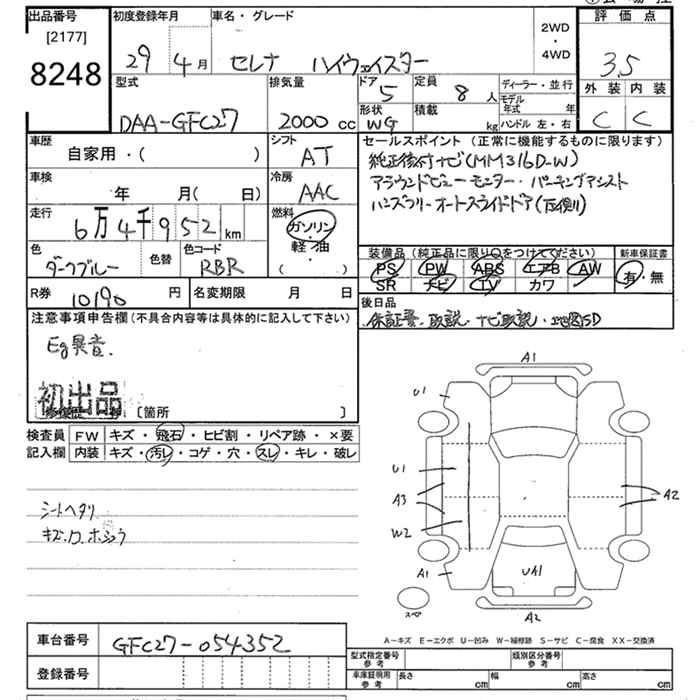 出品番号
[2177]
8248
初度登録年月
29年 4月
車名・グレード
セレナ ハイウェイスター
2WD
・
4WD
評価点
3.5
外装 内装
C C
型式
DAA-GFC27
排気量
2000 cc
ドア
5
定員
8 人
形状
WG
積載
kg
ディーラー・並行
モデル年式 年
ハンドル 左・右
車歴
自家用・( )
シフト
AT
車検
年 月( 日)
冷房
AAC
走行
6万4千952 km
燃料
ガソリン
軽油
( )
色
ダークブルー
色替
色コード
RBR
R券
10190 円
名変期限 月 日
セールスポイント(正常に機能するものに限ります)
純正後付ナビ(MM316D-W)
アラウンドビューモニター・パーキングアシスト
ハンズフリーオートスライドドア(左右側)
装備品(純正品に限り○をつけてください)
PS PW ABS エアB AW
SR ナビ TV カワ
新車保証書
有・無
後日品
保証書、取説、ナビ取説、地図SD
注意事項申告欄(不具合内容等は具体的に記入して下さい)
Eg異音.
初出品
修復歴 [箇所 ]
検査員記入欄
FW キズ・飛石・ヒビ割・リペア跡・×要
内装 キズ・汚レ・コゲ・穴・スレ・キレ・破レ
シートヘタリ
キズ.
A1
U1
U1
A3
W2
A1
A2
UA1
A2
スペア
A-キズ E-エクボ U-凹み W-補修跡 S-サビ C-腐食 XX-交換済
車台番号
GFC27-054352
登録番号
型式指定番号
参考
類別区分番号
参考
車庫証明用
参考
長さ cm
幅 cm
高さ cm